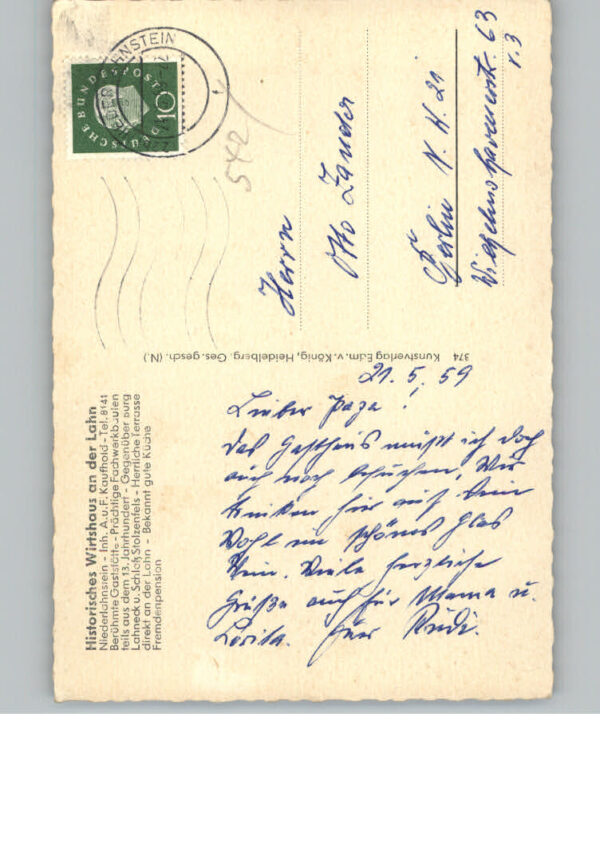 Historisches Wirtshaus an der Lahn
Niederlahnstein - Inh. A. u. F. Kaufhold - Tel. 8141
Berühmte Gaststätte - Prächtige Fachwerkbauten
teils aus dem 13. Jahrhundert - Gegenüber Burg
Lahneck u. Schloß Stolzenfels - Herrliche Terrasse
direkt an der Lahn - Bekannt gute Küche
Fremdenpension
21.5.59
Lieber Papa!
Das Gasthaus mußt ich doch
auch noch besuchen. Wir
trinken hier auf Dein
Wohl ein schönes Glas
Wein. Viele herzliche
Grüße auch für Mama u.
Lorita. Euer Rudi.
374 Kunstverlag Edm. v. König, Heidelberg. Ges. gesch. (N.)
DEUTSCHE BUNDESPOST
10
542
Herrn
Otto Zander
Berlin N.W. 21
Wilhelmshavenerstr. 63
v. 3